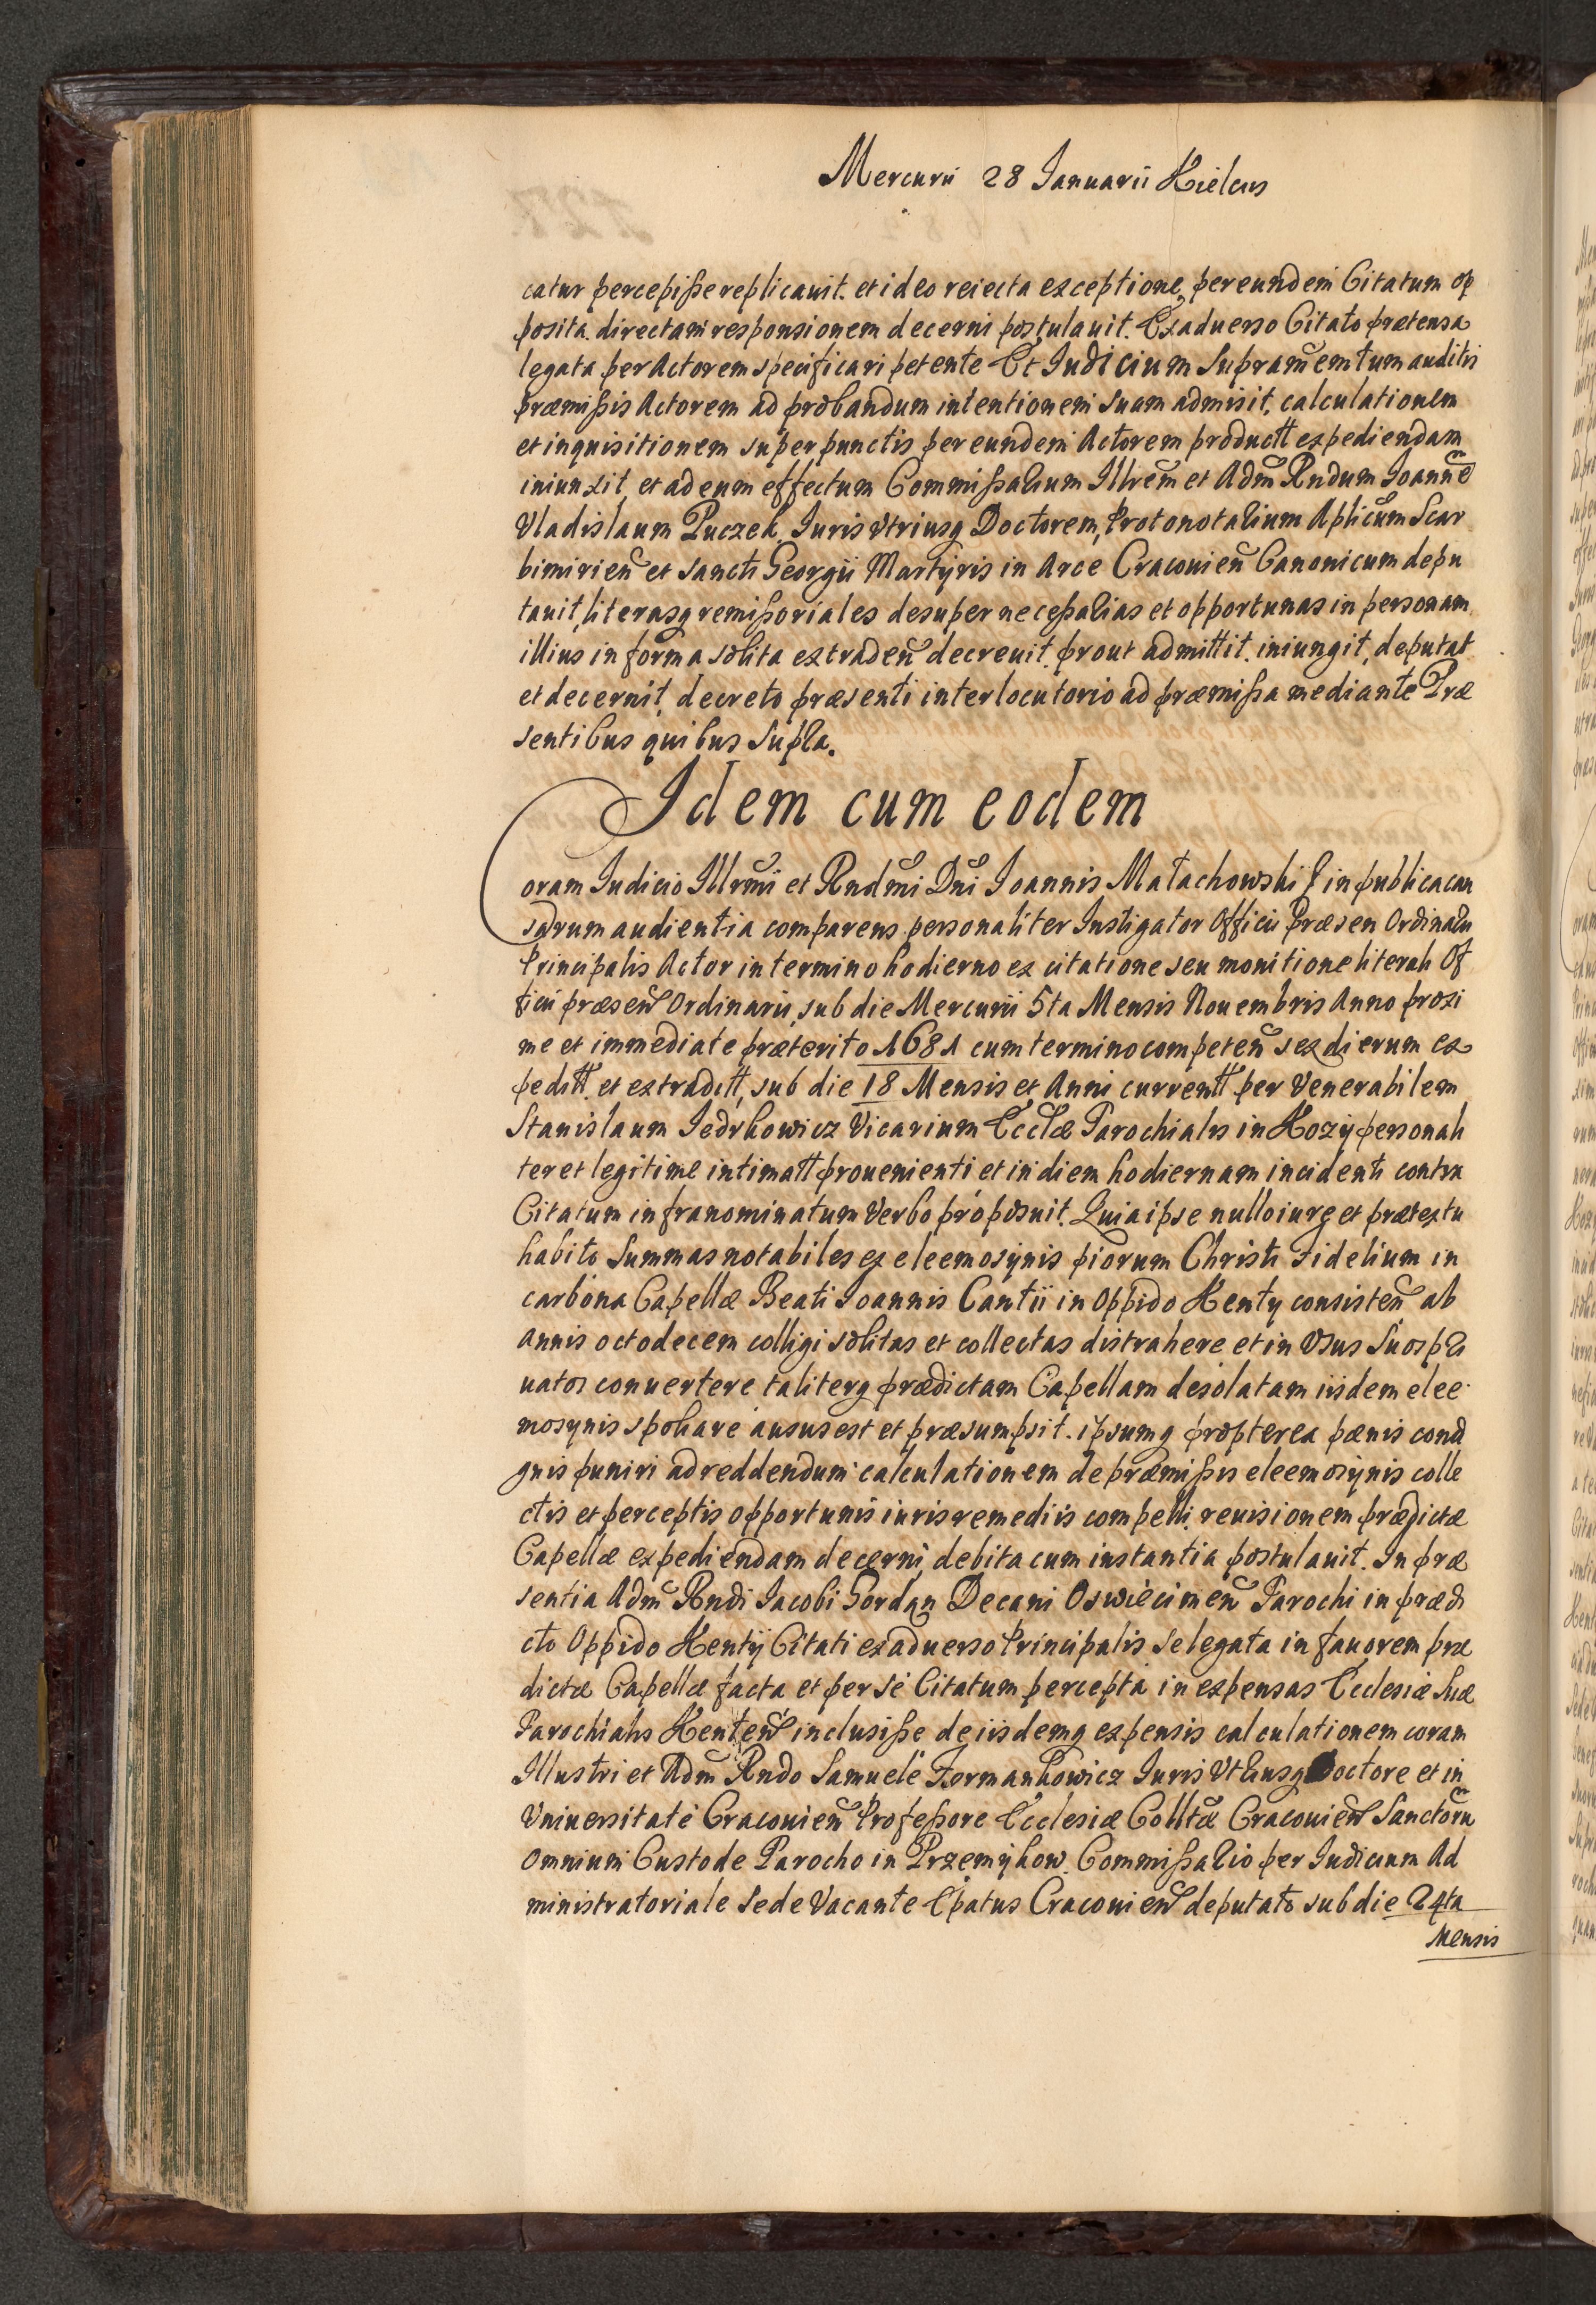 Mercurii 28 Ianuarii Kielciis
catur percepiße replicauit. et ideo reiecta exceptione, per eundem Citatum op
posita directam responsionem decerni postulauit. Ex aduerso Citato prætensa
legata per Actorem specificari petente Et Iudicium Supramemtum auditis
præmißis Actorem ad probandum intentionem suam admisit, calculationem
et inquisitionem super punctis per eundem Actorem productt expediendam
iniunxit, et ad eum effectum Commißarium Illrem et Adm Rndum Joanne
Vladislaum Puczek Iuris Vtriusq Doctorem, Protonotarium Aplicum Scar
bimirien et sancti Georgii Martyris in Arce Cracouien Canonicum depu
tauit, literasq remißoriales desuper neceßarias et opportunas in personam
illius in forma solita extraden decreuit, prout admittit, iniungit, deputat
et decernit, decreto præsenti interlocutorio ad præmißa mediante Præ
sentibus quibus Supra.
Idem cum eodem
Coram Iudicio Illrmi et Rndmi Dni Ioannis Małachowski P in publica cau
sarum audientia comparens personaliter Instigator Officii Præsen Ordinarii
Principalis Actor in termino hodierno ex citatione seu monitione literali Of
ficii præsen Ordinarii, sub die Mercurii 5ta Mensis Nouembris Anno proxi
me et immediate præterito 1681 cum termino competen sex dierum ex
peditt. et extraditt, sub die 18 Mensis et Anni currentt per Venerabilem
Stanislaum Jedrkowicz Vicarium Eccłæ Parochialis in Kozy personali
ter et legitime intimatt prouenienti et in diem hodiernam incidenti contra
Citatum infranominatum Verbo proposuit. Quia ipse nullo iure et prætextu
habito Summas notabiles ex eleemosynis piorum Christi Fidelium in
carbona Capellæ Beati Ioannis Cantii in Oppido Kenty consisten ab
annis octodecem colligi solitas et collectas distrahere et in Vsus Suos pri
uatos conuertere taliterq prædictam Capellam desolatam iisdem elee
mosynis spoliare ausus est et præsumpsit. ipsumq propterea pænis condi
gnis puniri ad reddendum calculationem de præmißis eleemosynis colle
ctis et perceptis opportunis iuris remediis compelli, reuisionem prædictæ
Capellæ expediendam decerni, debita cum instantia postulauit. In præ
sentia Adm Rndi Iacobi Gordan Decani Oswiecimen Parochi in prædi
cto Oppido Kenty Citati ex aduerso Principalis se legata in fauorem præ
dictæ Capellæ facta et per se Citatum percepta in expensas Ecclesiæ Suæ
Parochialis Kenten inclusiße de iisdemq expensis calculationem coram
Illustri et Adm Rndo Samuele Formankowicz Iuris Vtriusq Doctore et in
Vniuersitate Cracouien Profeßore Ecclesiæ Colltæ Cracouien Sanctoru
Omnium Custode Parocho in Przemykow. Commißario per Iudicium Ad
ministratoriale Sede Vacante Epatus Cracouien deputato sub die 24ta
Mensis